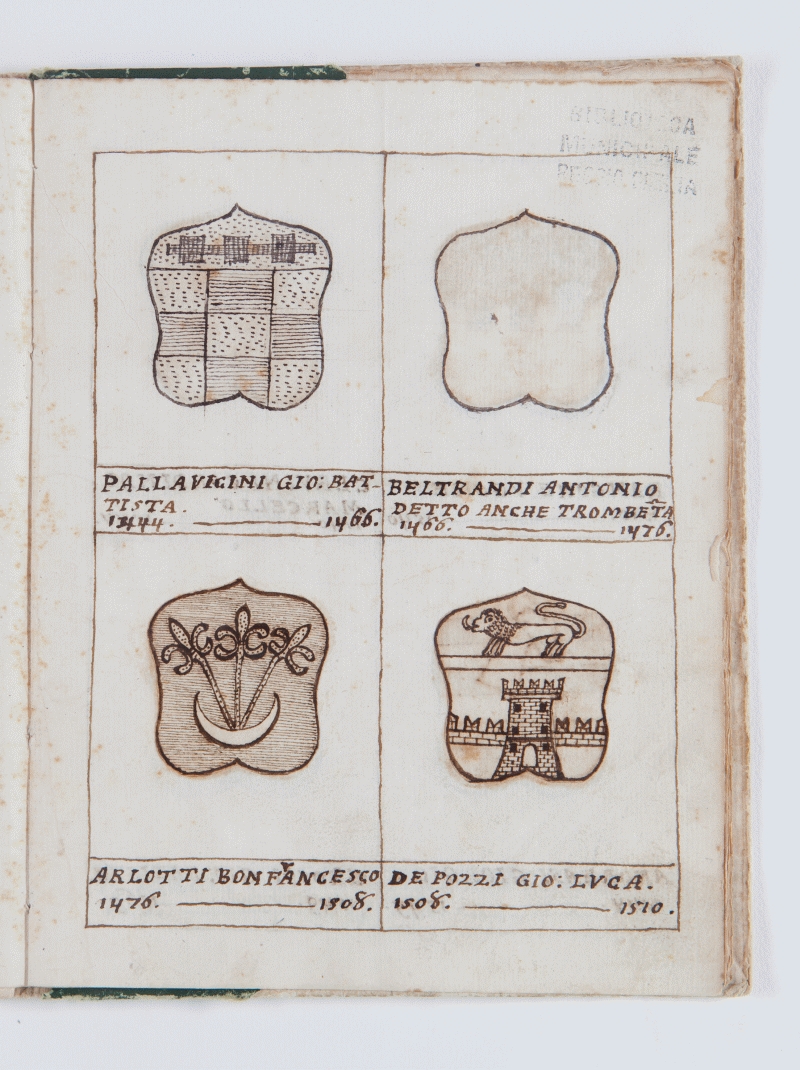 BIBLIOTECA
MUNICIPALE
REGGIO EMILIA
PALLAVICINI GIO: BAT-
TISTA.
1444. 1466.
BELTRANDI ANTONIO
DETTO ANCHE TROMBETA
1466. 1476.
ARLOTTI BONFRANCESCO
1476. 1508.
DE POZZI GIO: LVCA.
1508. 1510.